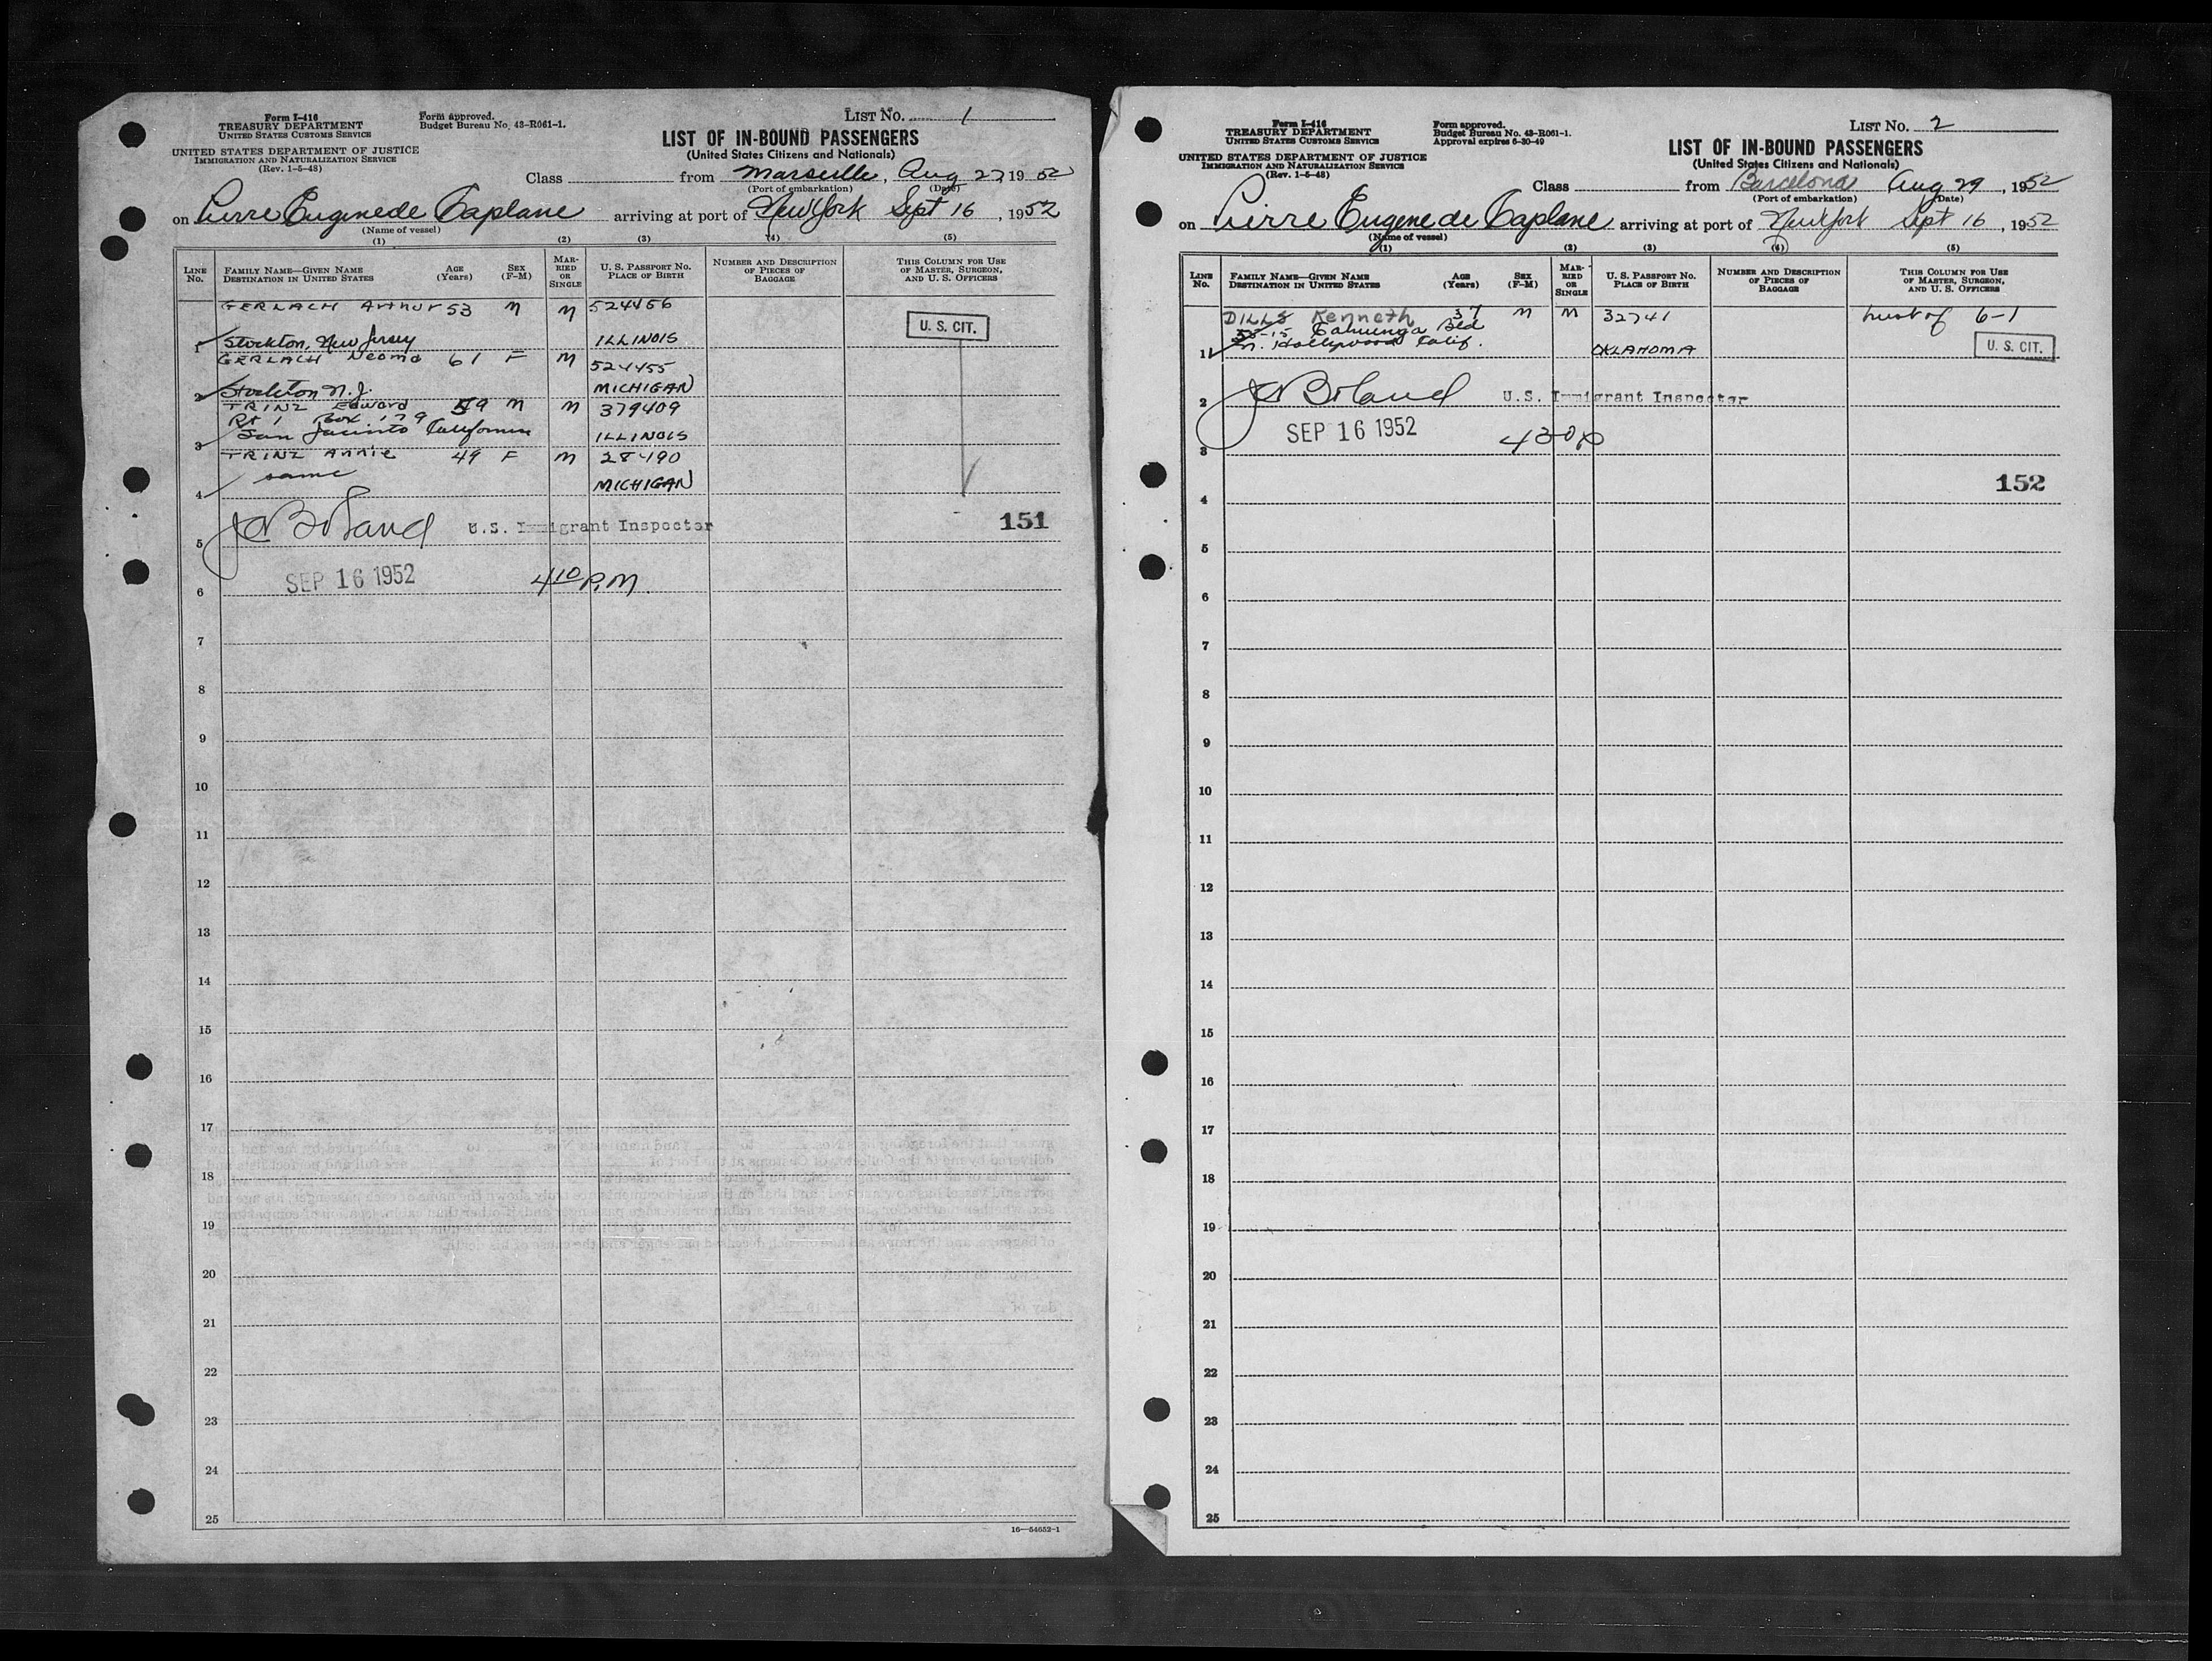 Form I-416
TREASURY DEPARTMENT
UNITED STATES CUSTOMS SERVICE
UNITED STATES DEPARTMENT OF JUSTICE
IMMIGRATION AND NATURALIZATION SERVICE
(Rev. 1-5-48)
Form approved.
Budget Bureau No. 43-R061-1.
LIST NO. 1
LIST OF IN-BOUND PASSENGERS
(United States Citizens and Nationals)
Class from Marseille, Aug 27, 1952
(Port of embarkation) (Date)
on Pierre Eugene de Caplane arriving at port of New York Sept 16, 1952
(Name of vessel)
(1) (2) (3) (4) (5)
LINE NO. FAMILY NAME—GIVEN NAME DESTINATION IN UNITED STATES AGE (Years) SEX (F-M) MARRIED OR SINGLE U. S. PASSPORT NO. PLACE OF BIRTH NUMBER AND DESCRIPTION OF PIECES OF BAGGAGE THIS COLUMN FOR USE OF MASTER, SURGEON, AND U. S. OFFICERS
GERLACH Arthur 53 M M 524456
U. S. CIT.
1 Stockton, New Jersey ILLINOIS
GERLACH Neoma 61 F M 524455
2 Stockton N.J. MICHIGAN
TRINZ Edward 59 M M 379409
Rt 1 Box 179
3 San Jacinto California ILLINOIS
TRINZ Annie 49 F M 28490
4 same MICHIGAN
J Boland U.S. Immigrant Inspector 151
5
SEP 16 1952 4 10 P.M.
6
7
8
9
10
11
12
13
14
15
16
17
18
19
20
21
22
23
24
25
16—54652-1
Form I-416
TREASURY DEPARTMENT
UNITED STATES CUSTOMS SERVICE
UNITED STATES DEPARTMENT OF JUSTICE
IMMIGRATION AND NATURALIZATION SERVICE
(Rev. 1-5-48)
Form approved.
Budget Bureau No. 43-R061-1.
Approval expires 6-30-49
LIST NO. 2
LIST OF IN-BOUND PASSENGERS
(United States Citizens and Nationals)
Class from Barcelona Aug 29, 1952
(Port of embarkation) (Date)
on Pierre Eugene de Caplane arriving at port of New York Sept 16, 1952
(Name of vessel)
(1) (2) (3) (4) (5)
LINE NO. FAMILY NAME—GIVEN NAME DESTINATION IN UNITED STATES AGE (Years) SEX (F-M) MARRIED OR SINGLE U. S. PASSPORT NO. PLACE OF BIRTH NUMBER AND DESCRIPTION OF PIECES OF BAGGAGE THIS COLUMN FOR USE OF MASTER, SURGEON, AND U. S. OFFICERS
DILLS Kenneth 37 M M 32741 hust of 6-1
Cahuenga Bld
1 N. Hollywood Calif. OKLAHOMA U. S. CIT.
J Boland U.S. Immigrant Inspector
2
SEP 16 1952 430p
3
152
4
5
6
7
8
9
10
11
12
13
14
15
16
17
18
19
20
21
22
23
24
25